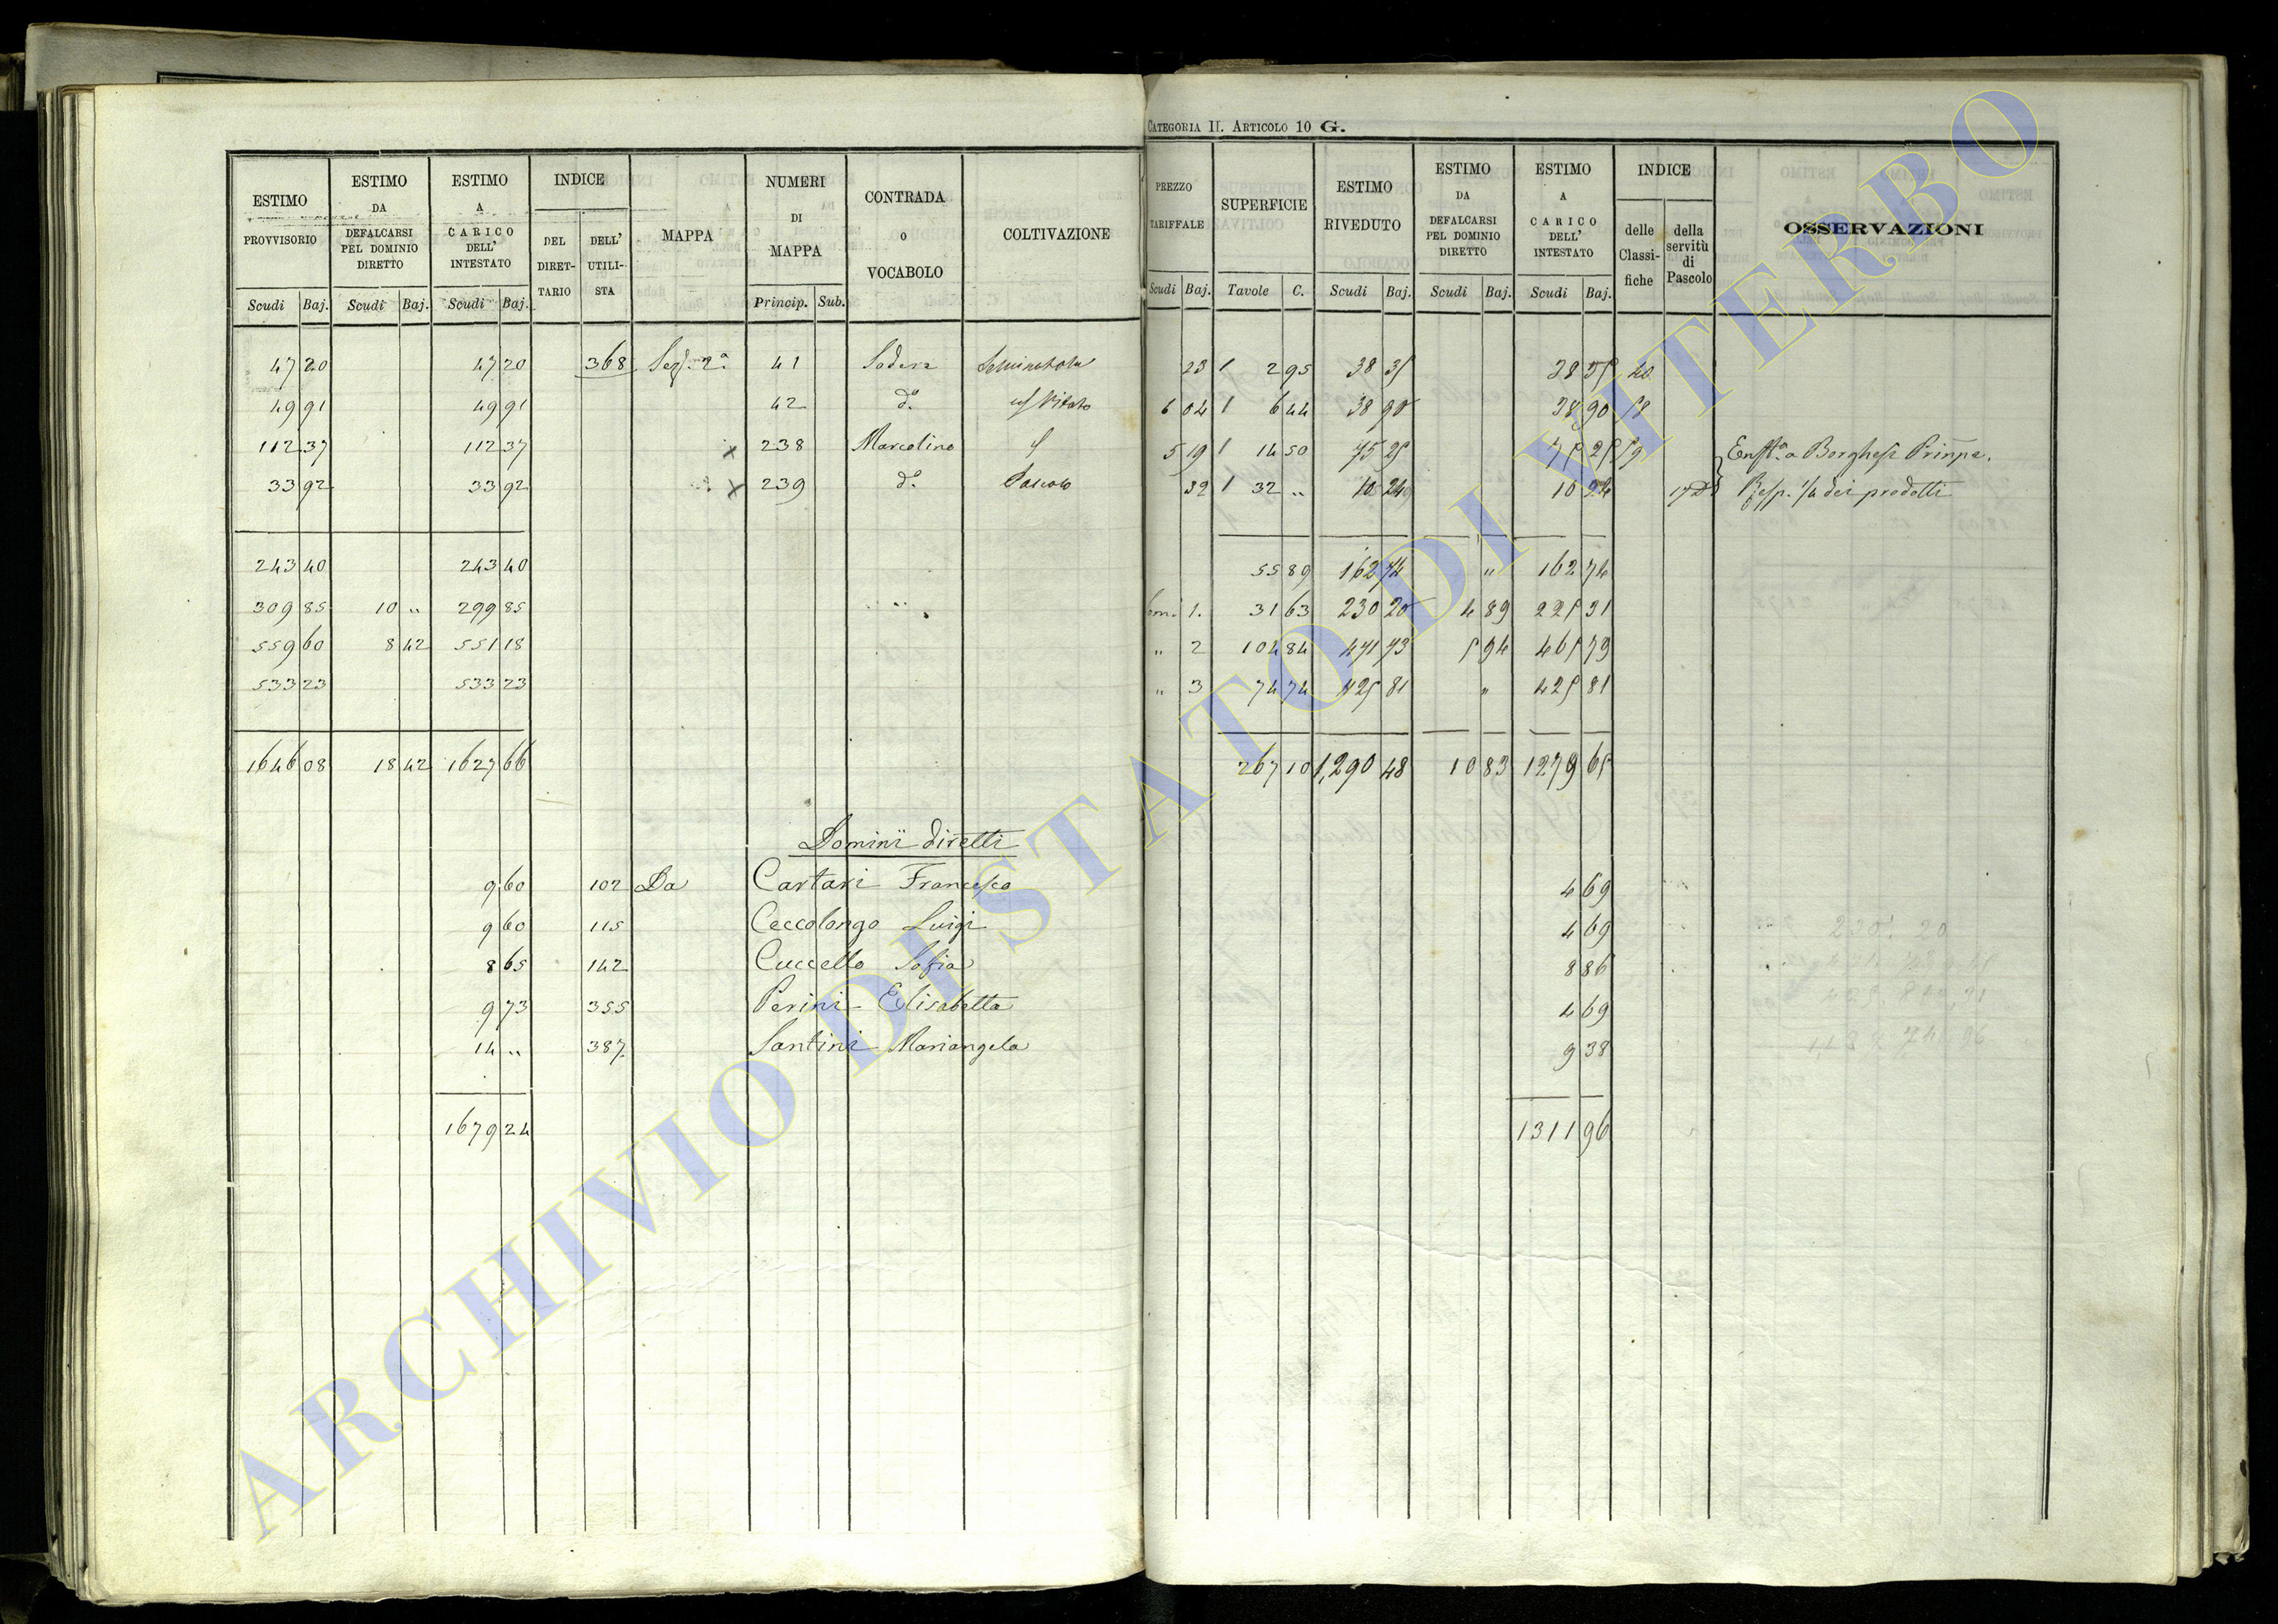 CATEGORIA II. ARTICOLO 10 G.
ESTIMO PROVVISORIO | ESTIMO DA DEFALCARSI PEL DOMINIO DIRETTO | ESTIMO A CARICO DELL' INTESTATO | INDICE DEL DIRETTARIO | DELL' UTILISTA | MAPPA | NUMERI DI MAPPA | CONTRADA O VOCABOLO | COLTIVAZIONE | PREZZO TARIFFALE | SUPERFICIE | ESTIMO RIVEDUTO | ESTIMO DA DEFALCARSI PEL DOMINIO DIRETTO | ESTIMO A CARICO DELL' INTESTATO | INDICE delle Classifiche | della servitù di Pascolo | OSSERVAZIONI
Scudi Baj. | Scudi Baj. | Scudi Baj. | Princip. Sub. | Scudi Baj. | Tavole C. | Scudi Baj. | Scudi Baj. | Scudi Baj.
47 20 | 47 20 | 368 | Sez. 2a | 41 | 23 | 2 95 | 38 35
49 91 | 49 91 | 42 | do. | Vitato | 6 04 | 6 44 | 38 90 | 38 90
112 37 | 112 37 | x 238 | Marcolino | 5 19 | 14 50 | 75 25 | 75 25 | 59 | a Borghese
33 92 | 33 92 | x 239 | do. | Pascolo | 32 | 32 „ | 10 24 | 10 24 | Resp. 1/4 dei prodotti
243 40 | 243 40 | 55 89 | 162 74 | „ | 162 74
309 85 | 10 „ | 299 85 | 1. | 31 63 | 230 20 | 4 89 | 225 31
559 60 | 8 42 | 551 18 | „ 2 | 104 84 | 471 73 | 5 94 | 465 79
533 23 | 533 23 | „ 3 | 74 74 | 425 81 | „ | 425 81
1646 08 | 18 42 | 1627 66 | 267 10 | 1,290 48 | 10 83 | 1279 65
Dominii diretti
9 60 | 102 | Da | Cartari Francesco | 4 69
9 60 | 115 | Ceccolongo Luigi | 4 69
8 65 | 142 | Cuccello Sofia | 8 86
9 73 | 355 | Perini Elisabetta | 4 69
14 „ | 387 | Santini Mariangela | 9 38
1679 24 | 1311 96
ARCHIVIO DI STATO DI VITERBO